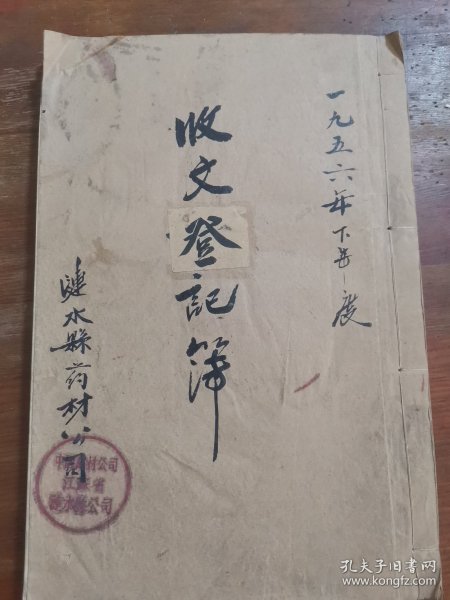 一九五六年下半年度
收文登記簿
漣水縣药材公司
中国药材公司
江苏省
漣水縣公司
孔夫子旧书网
www.kongfz.com